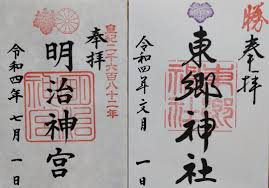 勝
奉拝
東郷神社
令和四年文月一日
奉拝
皇紀二千六百八十二年
明治神宮
令和四年七月一日